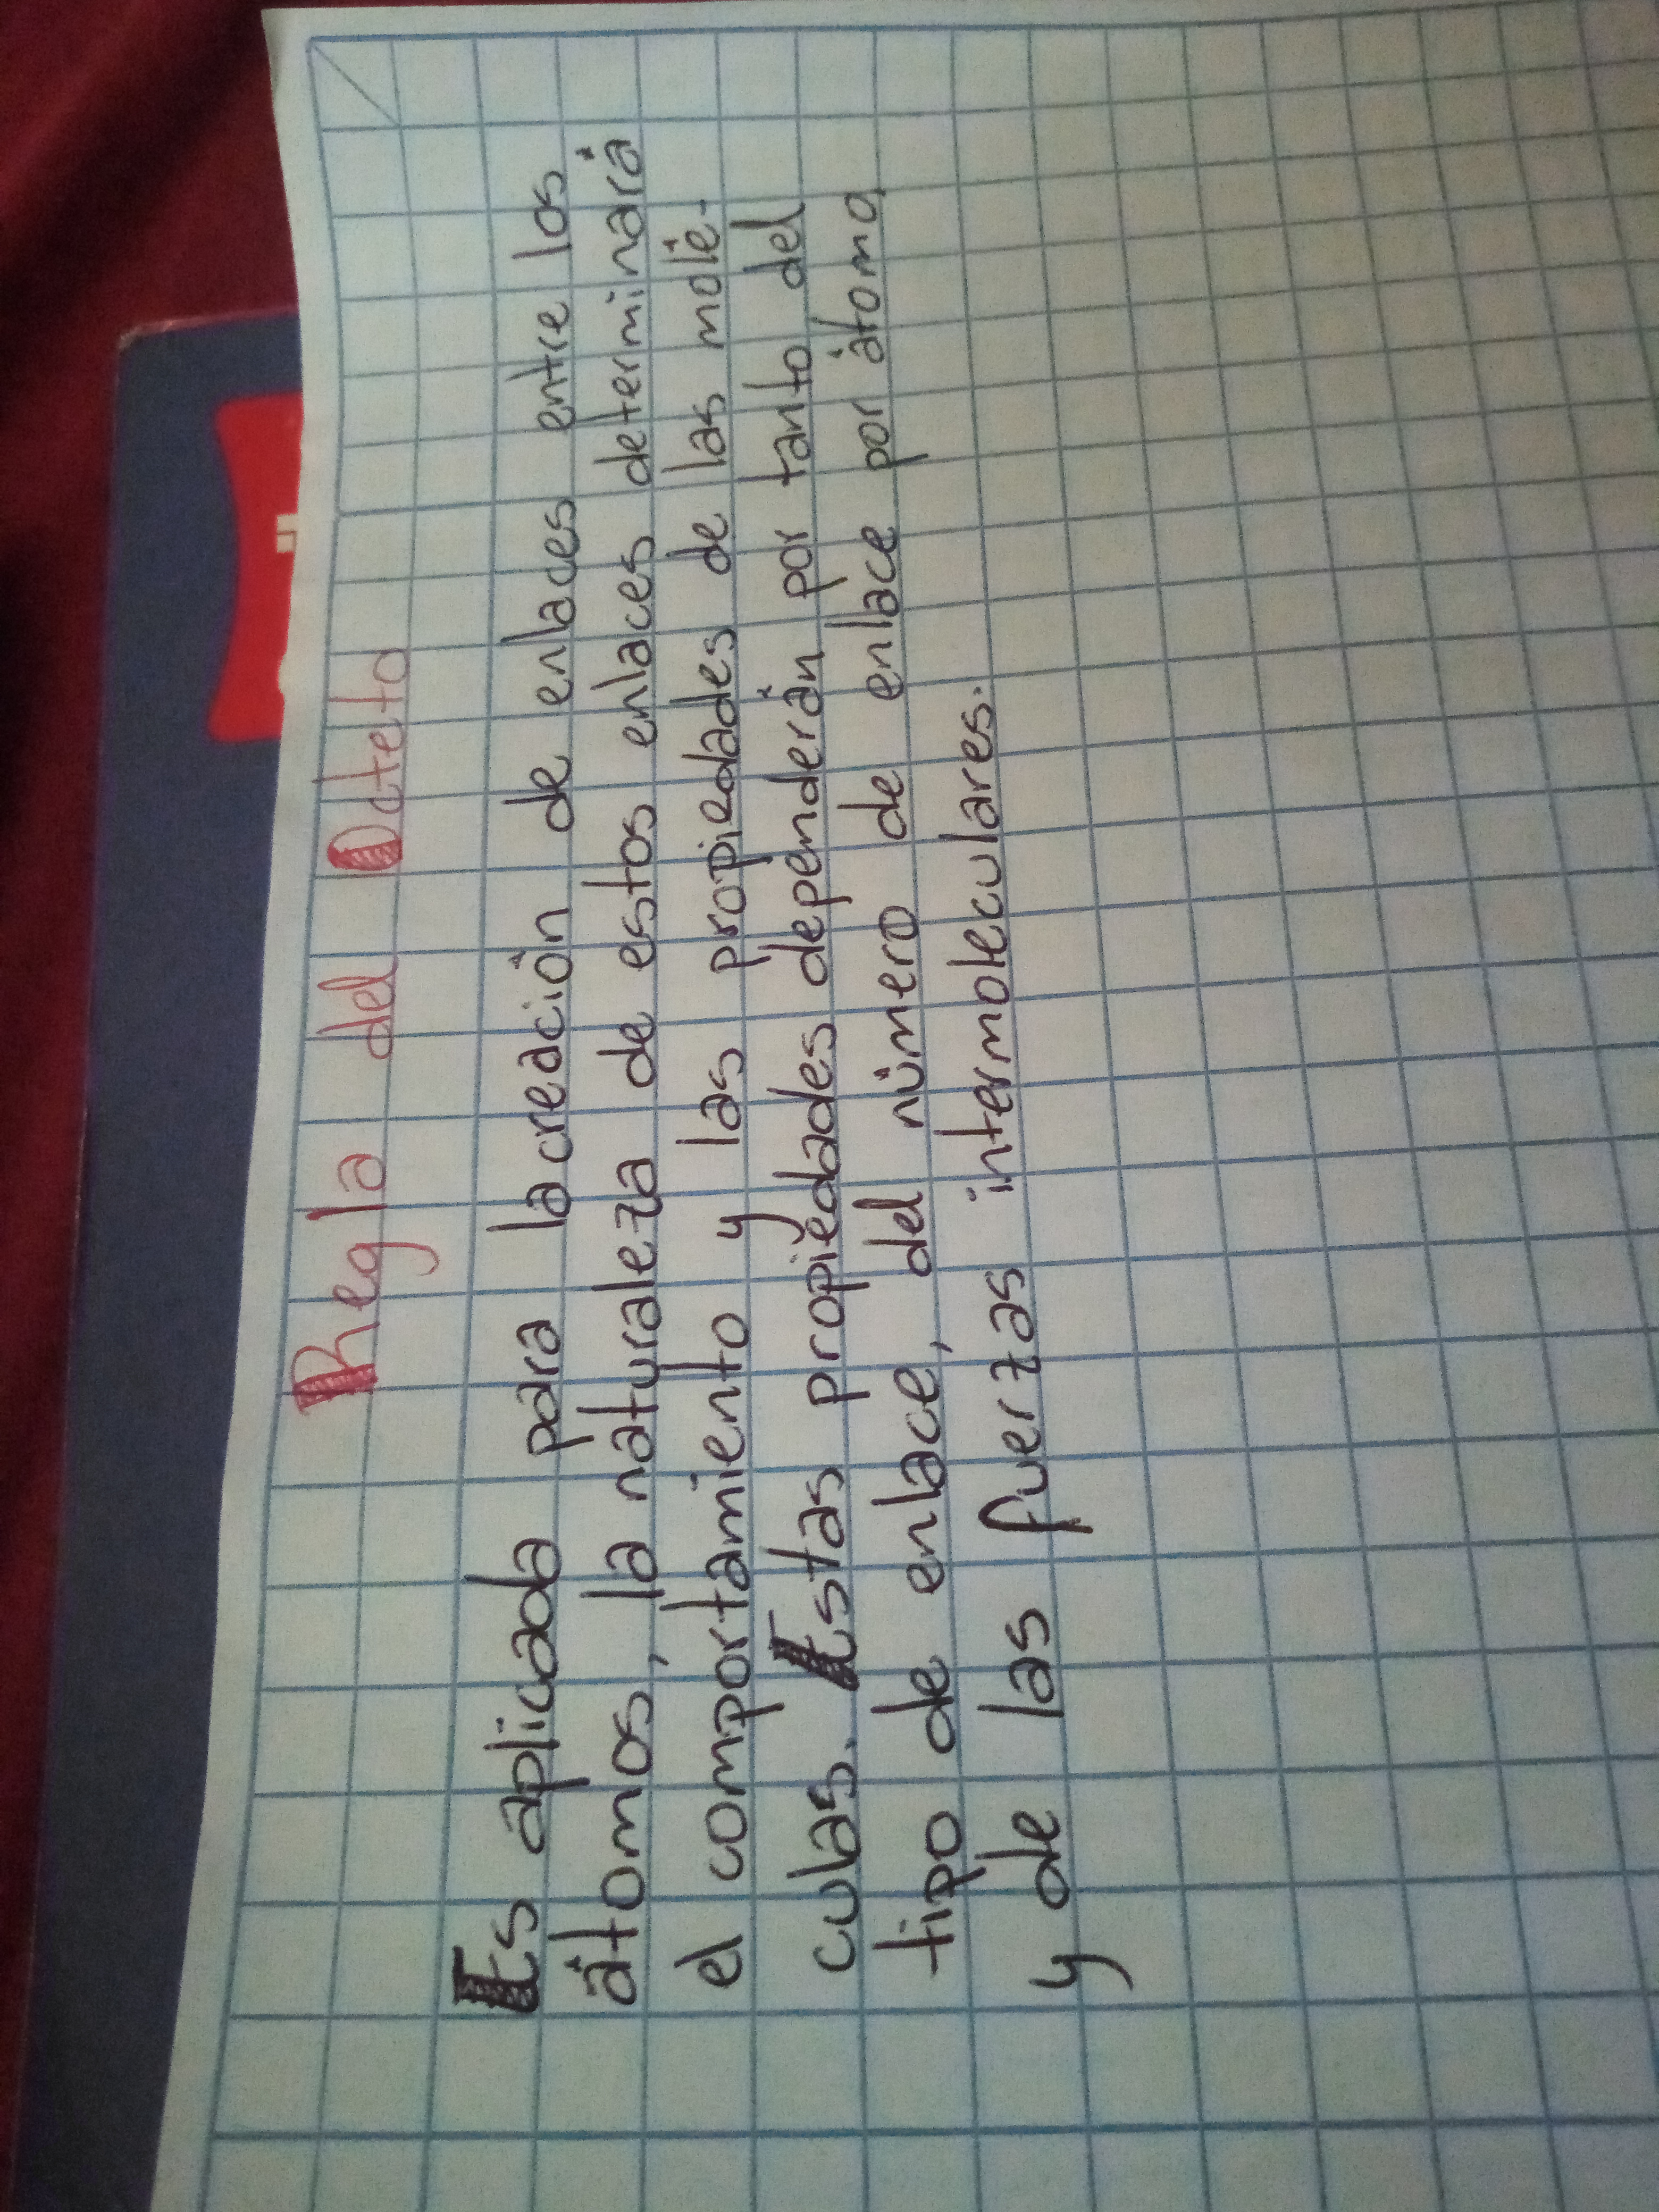 Regla del Octeto
Es aplicada para la creación de enlaces entre los
átomos, la naturaleza de estos enlaces determinará
el comportamiento y las propiedades de las molé-
culas. Estas propiedades dependerán por tanto del
tipo de enlace, del número de enlace por átomo,
y de las fuerzas intermoleculares.